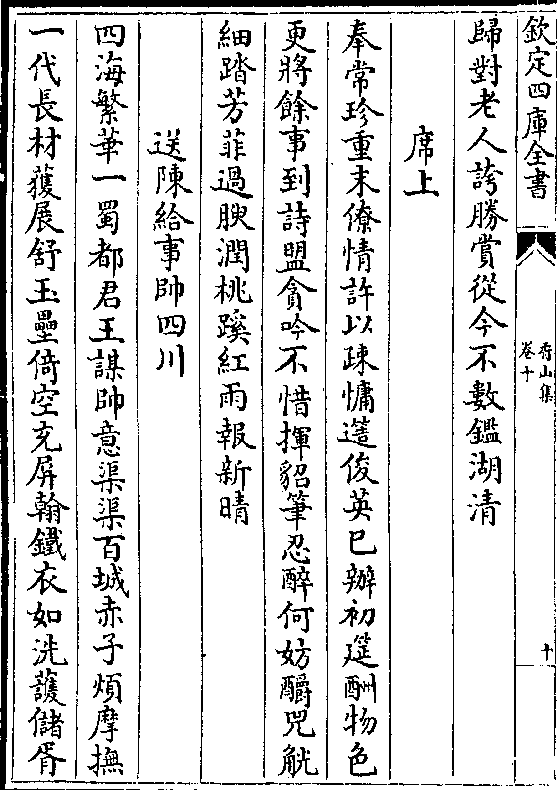 欽定四庫全書
香山集
卷十
十
歸對老人誇勝賞從今不數鑑湖清
席上
奉常珍重末僚情許以疎慵簉俊英已辦初筵酬物色
更將餘事到詩盟貪吟不惜揮貂筆忍醉何妨釂兕觥
細踏芳菲過腴潤桃蹊紅雨報新晴
送陳給事帥四川
四海繁華一蜀都君王謀帥意渠渠百城赤子煩摩撫
一代長材獲展舒玉壘倚空充屏翰鐵衣如洗護儲胥